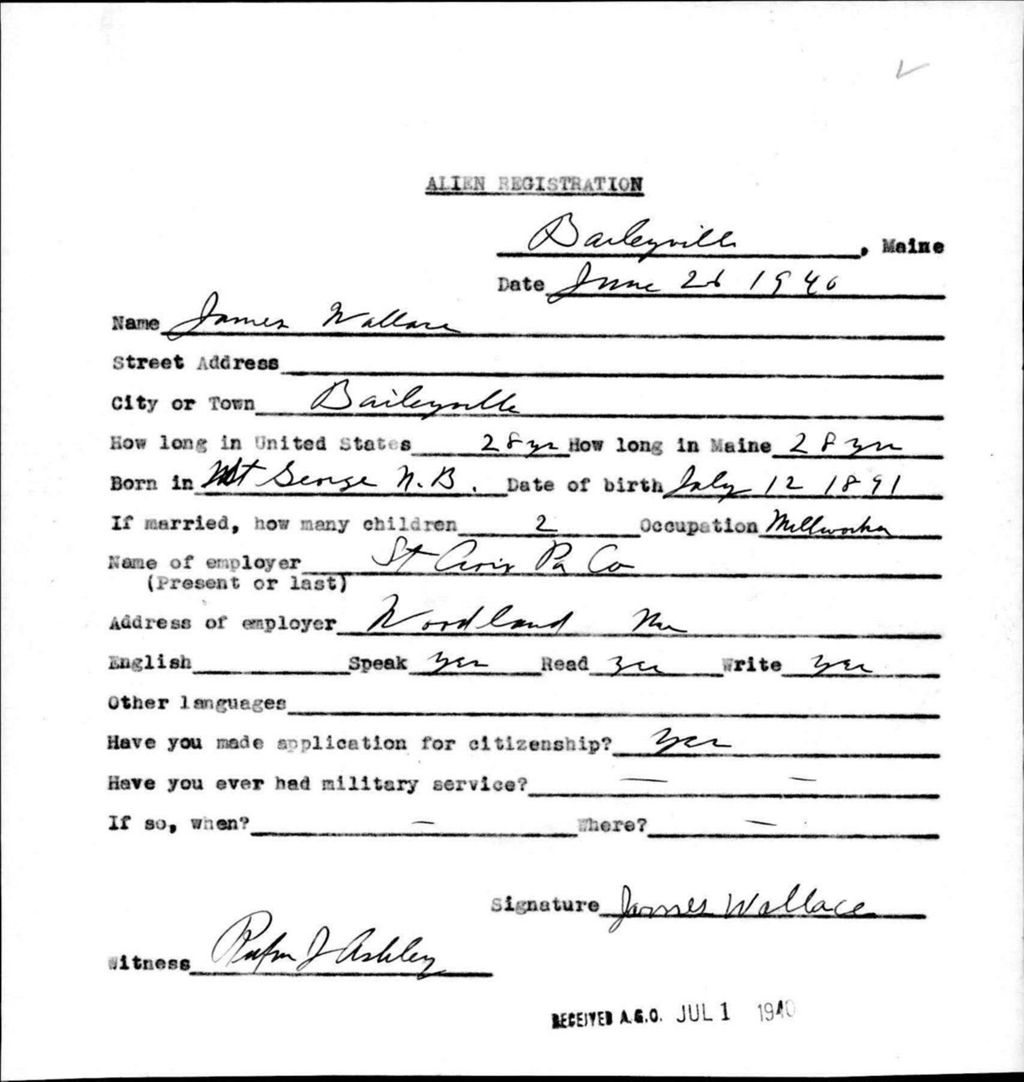 ALIEN REGISTRATION
Baileyville, Maine
Date June 26 1940
Name James Wallace
Street Address
City or Town Baileyville
How long in United States 28 yrs How long in Maine 28 yrs
Born in St George N.B. Date of birth July 12 1891
If married, how many children 2 Occupation Millworker
Name of employer St Croix Pa Co
(Present or last)
Address of employer Woodland Me
English Speak yes Read yes Write yes
Other languages
Have you made application for citizenship? yes
Have you ever had military service? — —
If so, when? — Where? —
Signature James Wallace
Witness Rufus J Ashley
RECEIVED A.G.O. JUL 1 1940